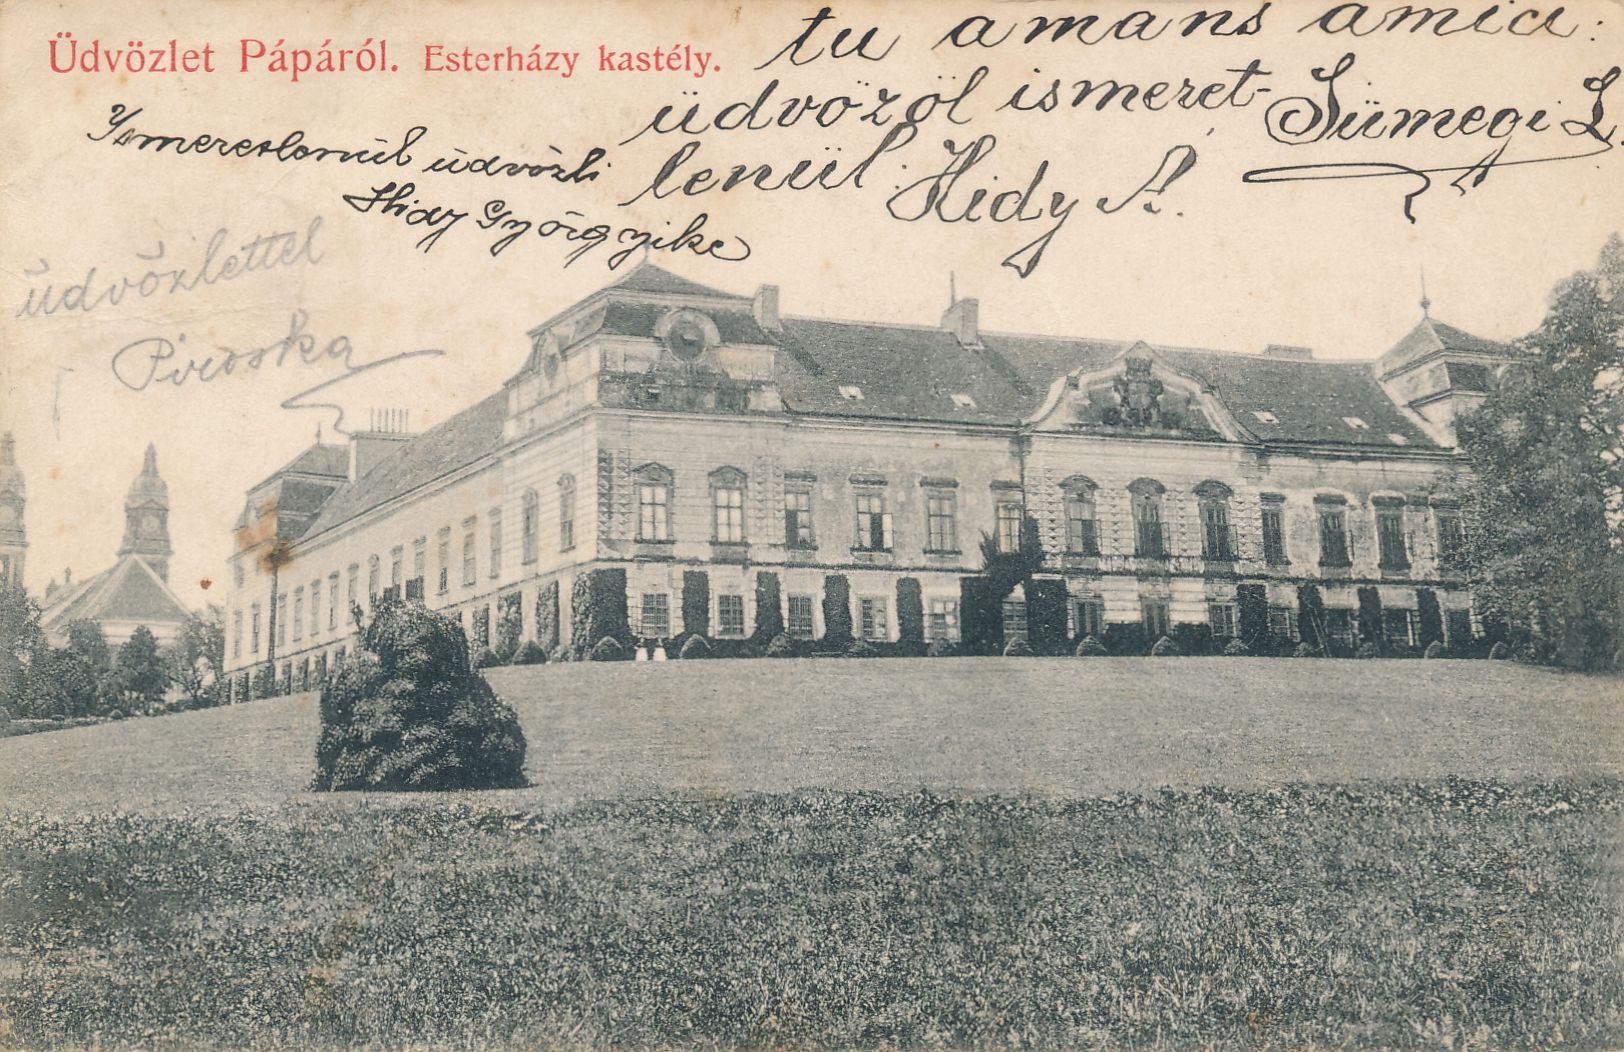 Üdvözlet Pápáról. Esterházy kastély.
tu amans amici:
Sümegi L.
üdvözöl ismeret-
lenül: Hidy A.
Ismeretlenül üdvözli
Hidy Györgyike
üdvözlettel
Piroska